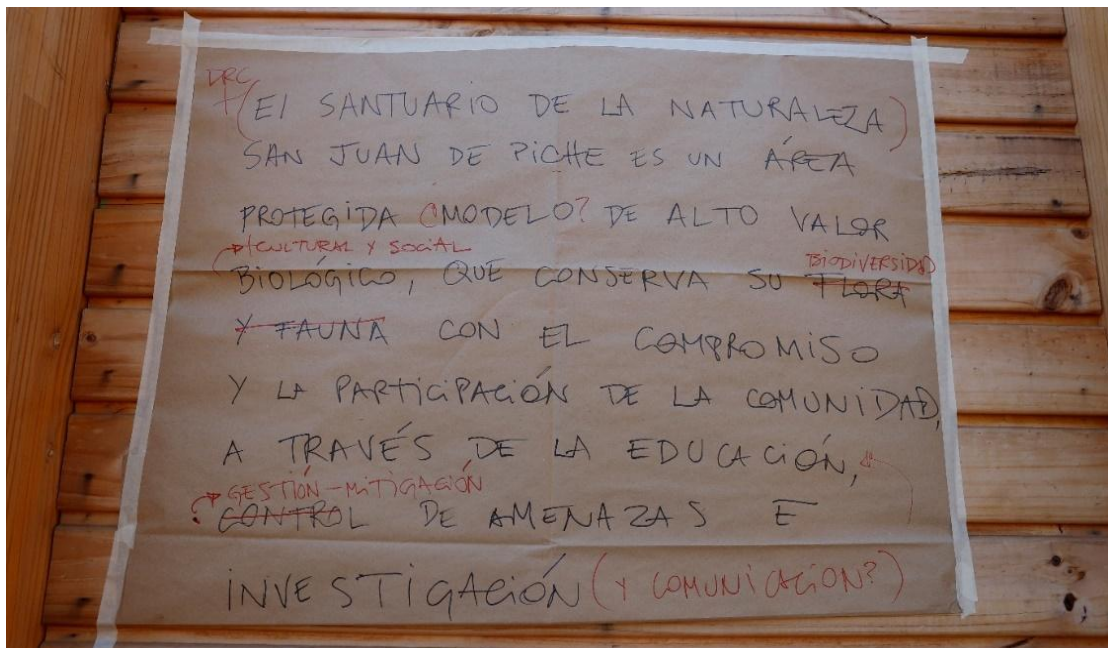 DRC
+(El SANTUARIO DE LA NATURALEZA)
SAN JUAN DE PICHE ES UN ÁREA
PROTEGIDA ¿MODELO? DE ALTO VALOR
+CULTURAL Y SOCIAL
BIODIVERSIDAD
BIOLÓGICO, QUE CONSERVA SU FLORA
Y FAUNA CON EL COMPROMISO
Y LA PARTICIPACIÓN DE LA COMUNIDAD,
A TRAVÉS DE LA EDUCACIÓN,
GESTIÓN-MITIGACIÓN
CONTROL DE AMENAZAS E
INVESTIGACIÓN (Y COMUNICACION?)